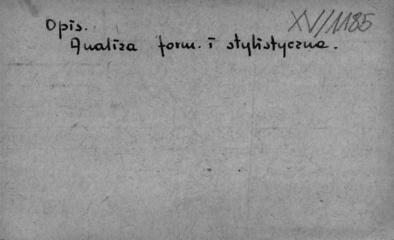 XV/1185
Opis.
Analiza form. i stylistyczna.